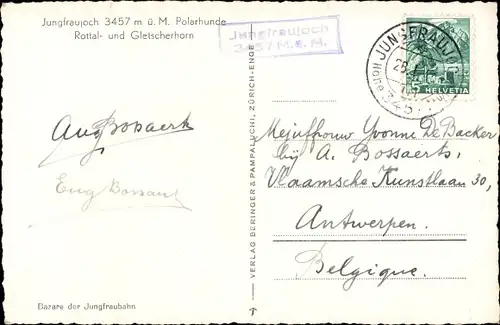 Jungfraujoch 3457 m ü. M. Polarhunde
Rottal- und Gletscherhorn
Jungfraujoch
3457 M.ü.M.
JUNGFRAUJOCH
5
HELVETIA
Aug Bossaert
Eug Bossaert
Mejuffrouw Yvonne De Backer
bij A. Bossaerts,
Vlaamsche Kunstlaan 30,
Antwerpen.
Belgique.
VERLAG BERINGER & PAMPALUCHI, ZÜRICH-ENGE
Bazare der Jungfraubahn